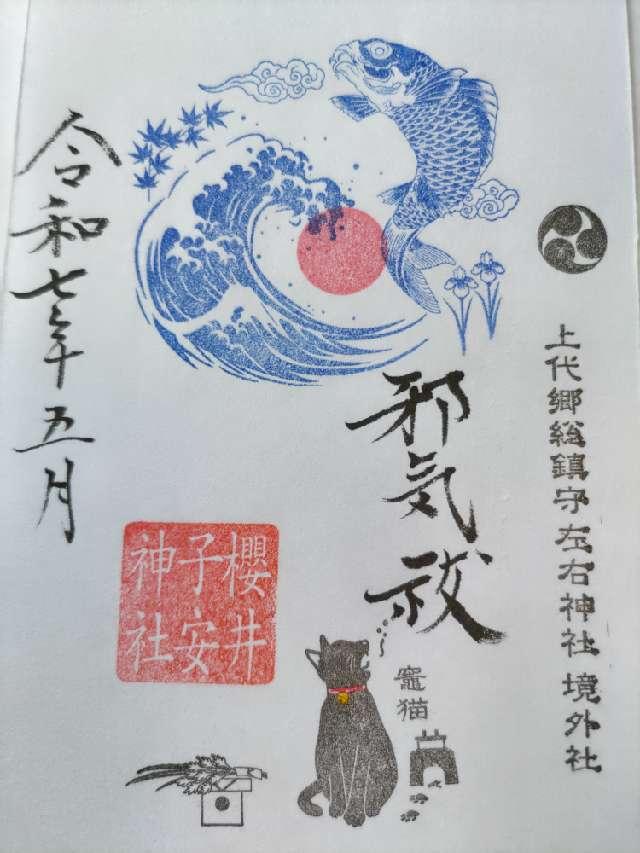 上代郷総鎮守左右神社 境外社
邪気祓
竈猫
櫻井
子安
神社
令和七年五月